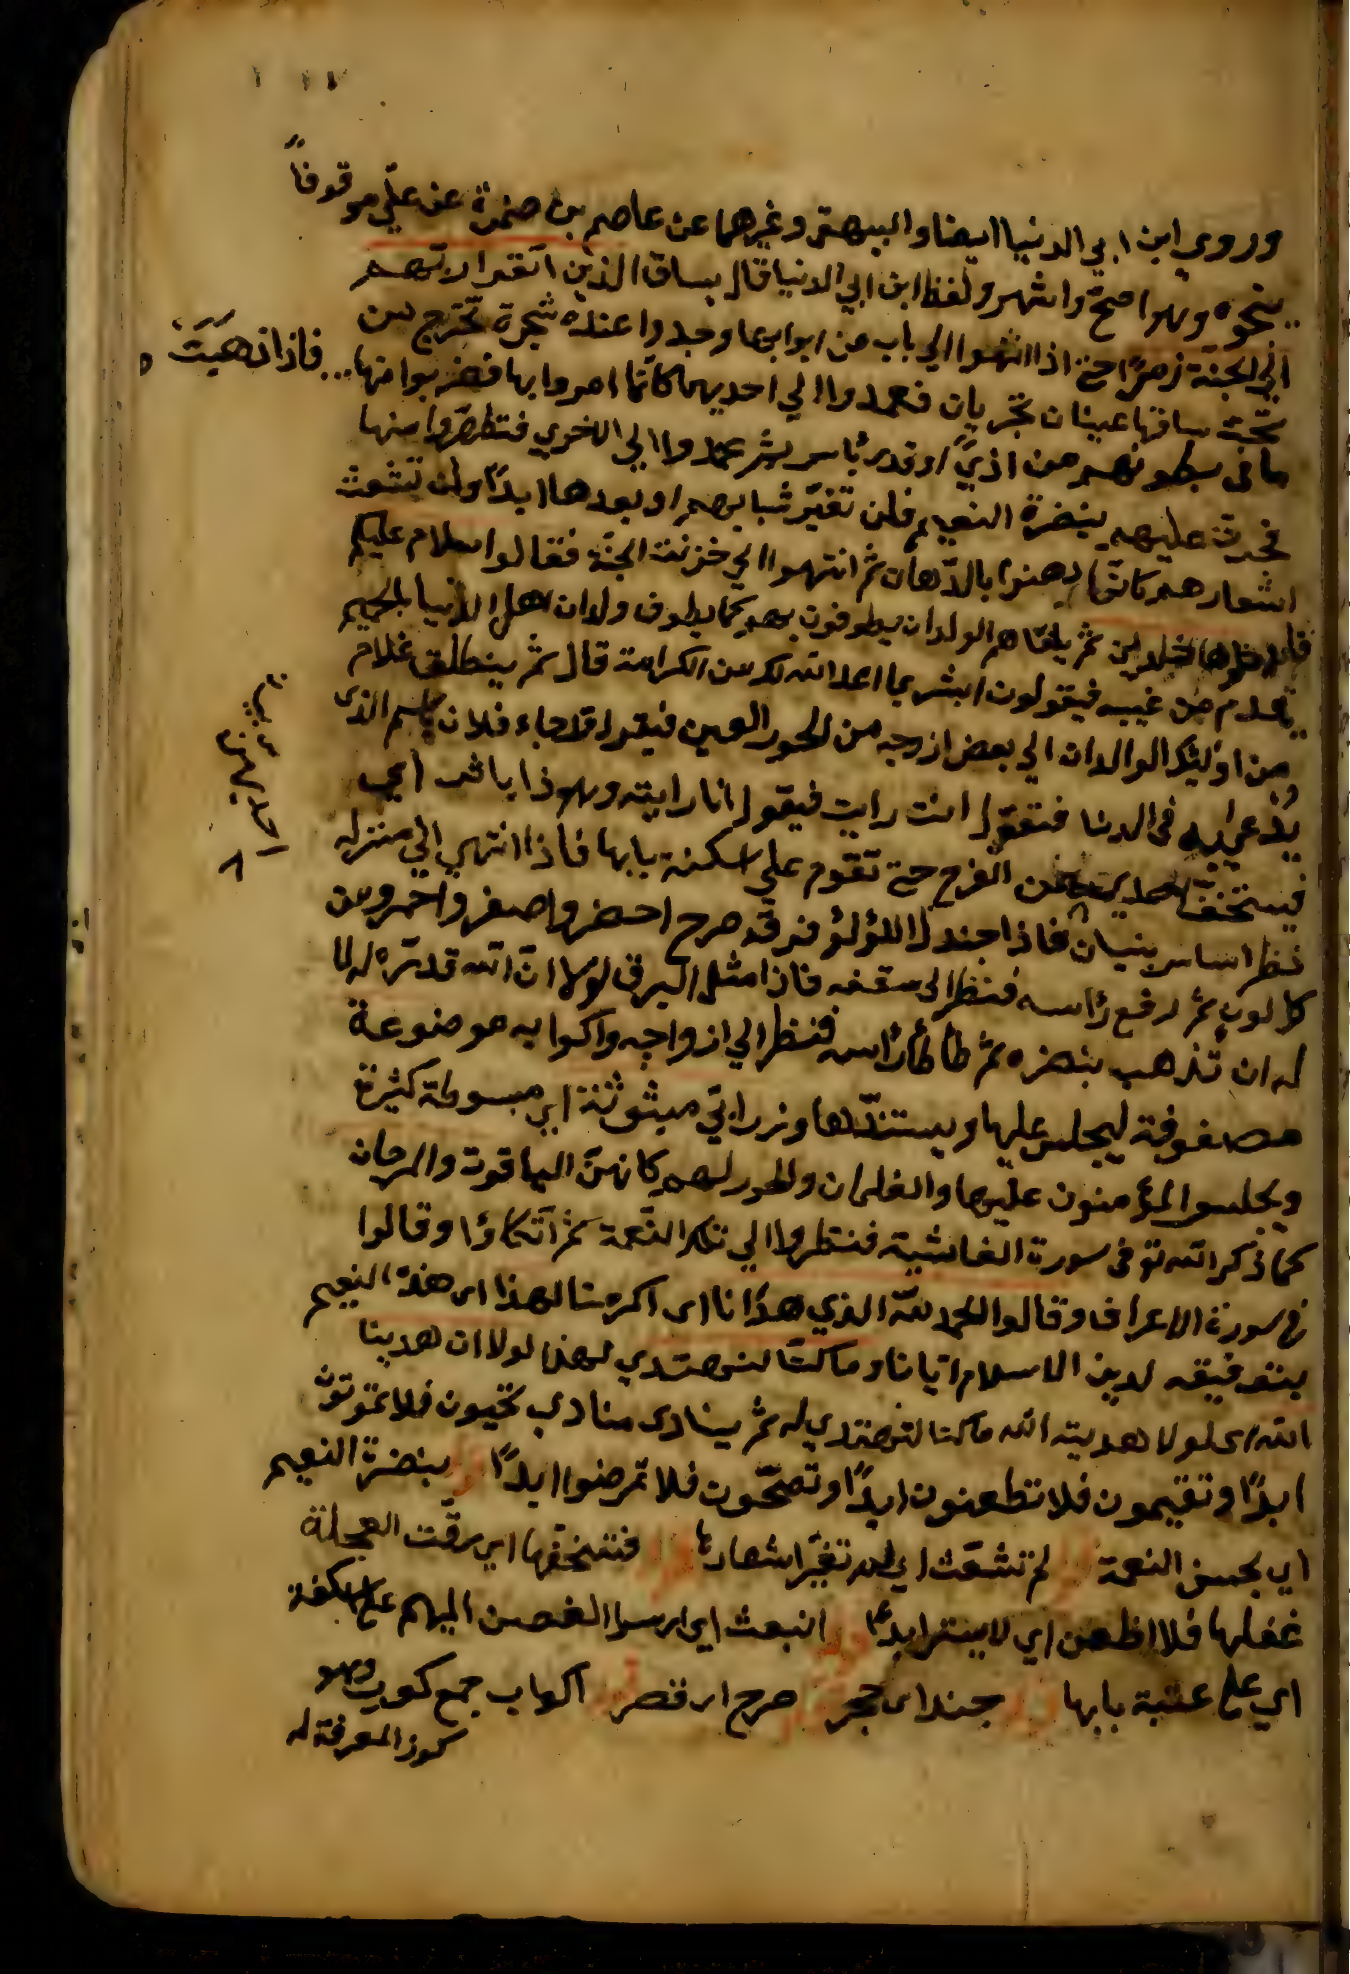 وروي ابن ابي الدنيا ايضا والبيهقي وغيرهما عن عاصم بن ضمرة عن علي موقوفاً
بنحوه وهو اصح واشهر ولفظ ابن ابي الدنيا قال يساق الذين اتقوا ربهم
الي الجنة زمرًا حتي اذا انتهوا الي باب من ابوابها وجدوا عنده شجرة تخرج من
تحت ساقها عينان تجريان فعمدوا الي احديهما كانما امروا بها فشربوا منها فاذا ذهبت
ما في بطونهم من اذيً او قذر او بأس ثم عمدوا الي الاخري فتطهروا منها
فجرت عليهم بنضرة النعيم فلن تغير شبابهم او بعدها ابدًا ولن تشعث
اشعارهم كانما دهنوا بالدهان ثم انتهوا الي خزنة الجنة فقالوا سلام عليكم
فادخلوها خلدين ثم يلقاهم الولدان يطوفون بهم كما يطوف ولدان اهل الدنيا بالحميم
يقدم من غيبه فيقولون ابشر بما اعد الله لك من الكرامة قال ثم ينطلق غلام
من اوليك الوالدان الي بعض ازوجه من الحور العين فيقول قد جاء فلان باسم الذي
يدعي به في الدنيا فتقول انت رايت فيقول انا رايته وهو ذا باثري
فيستخف من الفرح حتي تقوم علي اسكفة بابها فاذا انتهي الي منزله
نظر اساس بنيان فاذا جندل اللؤلؤ فوقه صرح اخضر واصفر واحمر ومن
كل لون ثم رفع رأسه فنظر الي سقفه فاذا مثل البرق لولا ان الله قدره له لا
له ان تذهب بصره ثم طأطأ رأسه فنظر الي ازواجه واكوابه موضوعة
مصفوفة ليجلس عليها ويستندها وزرابي مبثوثة اي مبسوطة كثيرة
ويجلسوا المؤمنون عليها والغلمان والحور لهم كانهن الياقوت والمرجان
كما ذكر الله تع في سورة الغاشية فنظروا الي تلك النعمة ثم اتكاؤا وقالوا
في سورة الاعراف وقالوا الحمد لله الذي هدانا اي اكرمنا لهذا اي هذه النعيم
بتوفيقه لدين الاسلام ايانا وما كنا لنهتدي لهذا لولا ان هدينا
الله اي لولا هديته الله ما كنا لنهتدي له ثم ينادي منادي تحيون فلا تموتون
ابدًا وتقيمون فلا تظعنون ابدًا وتصحون فلا تمرضوا ابدًا بنضرة النعيم
اي بحسن النعمة لم تشعث اي لم تغير اشعارها فتستخفها اي سرقت العجلة
غفلها فلا اظعن اي لا يسفر ابدًا انبعث اي ارسوا الغصن اليهم علي اسكفة
اي علي عتبة بابها جند اي حجر صرح اي قصر اكواب جمع كوب وهو
كوز المعرفة له